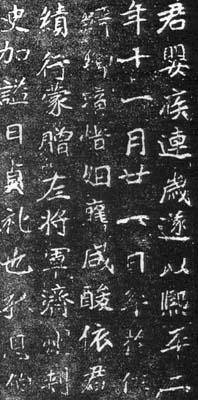 君嬰疾連歲遂以熙平二
年十一月廿一日卒於
痛惜烟襄咸酸依君
績行蒙贈左將軍濟州刺
史加諡曰貞礼也